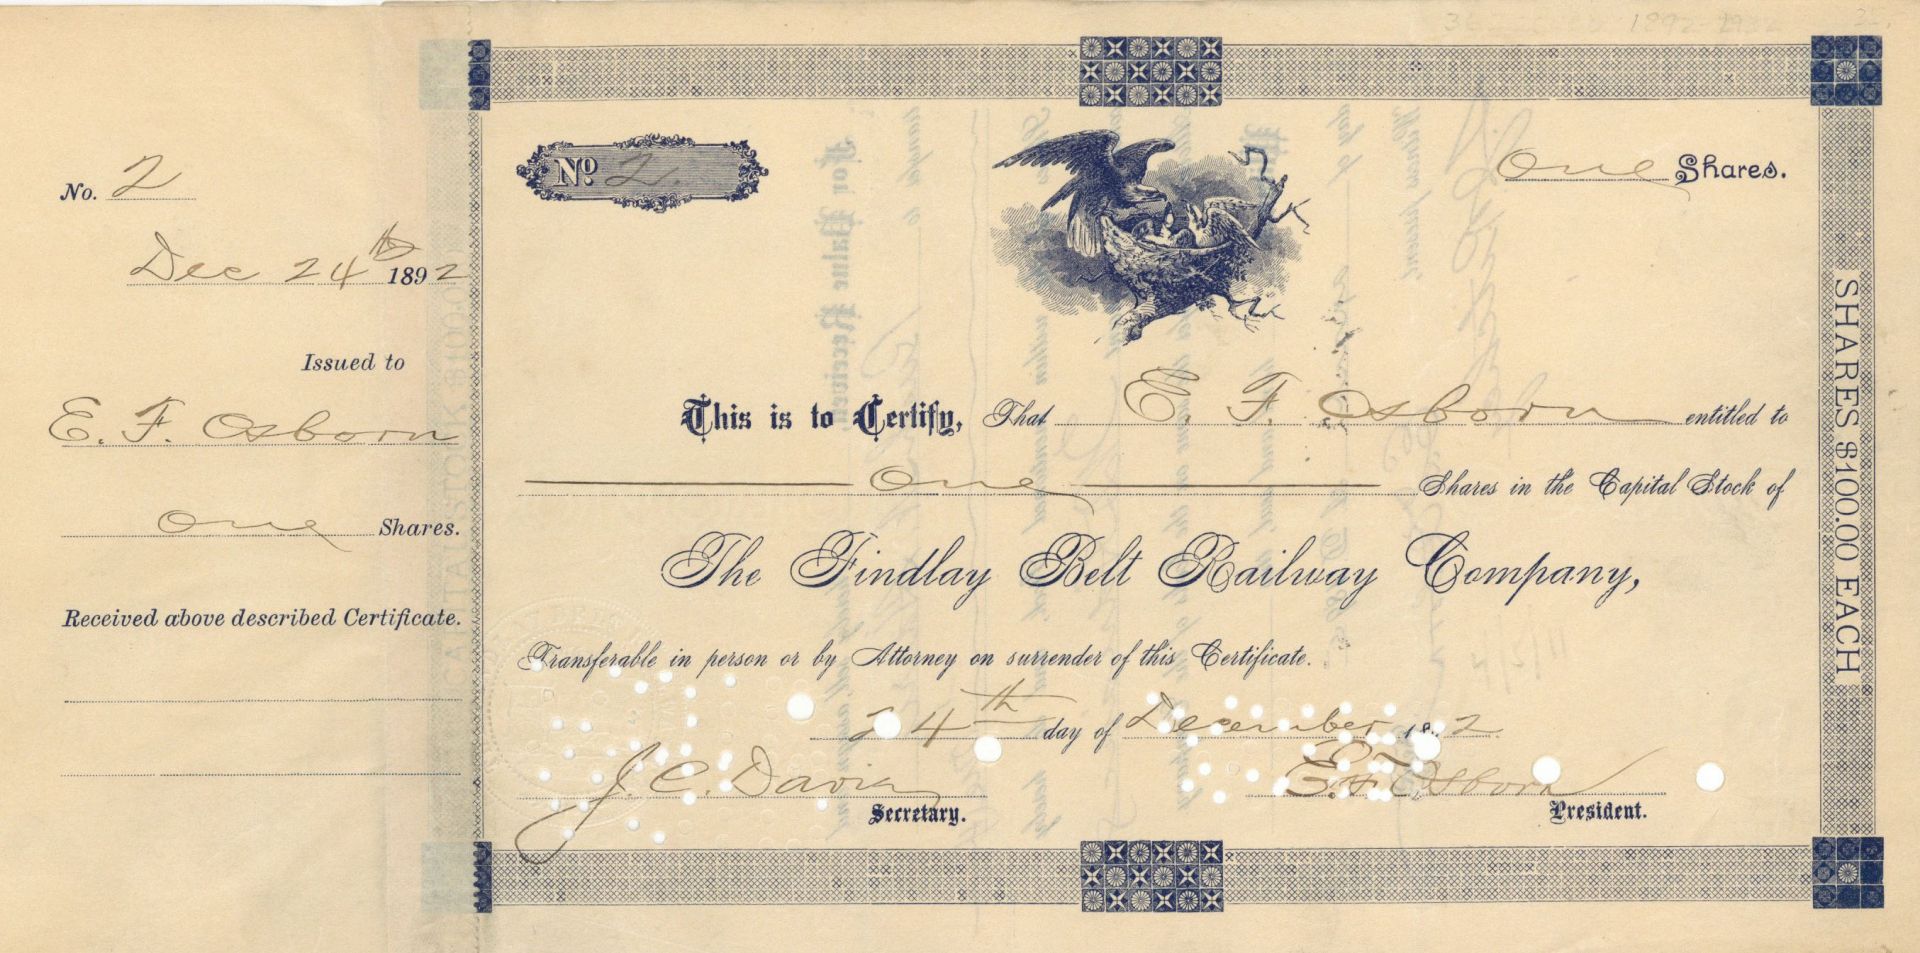 No. 2
Dec 24th 1892
Issued to
E. F. Osborn
One Shares.
Received above described Certificate.
No. 2
One Shares.
This is to Certify, That E. F. Osborn entitled to
One Shares in the Capital Stock of
The Findlay Belt Railway Company,
Transferable in person or by Attorney on surrender of this Certificate.
24th day of December 1892
J. C. Davis E. F. Osborn
Secretary. President.
SHARES $100.00 EACH
CAPITAL STOCK
For Value Received